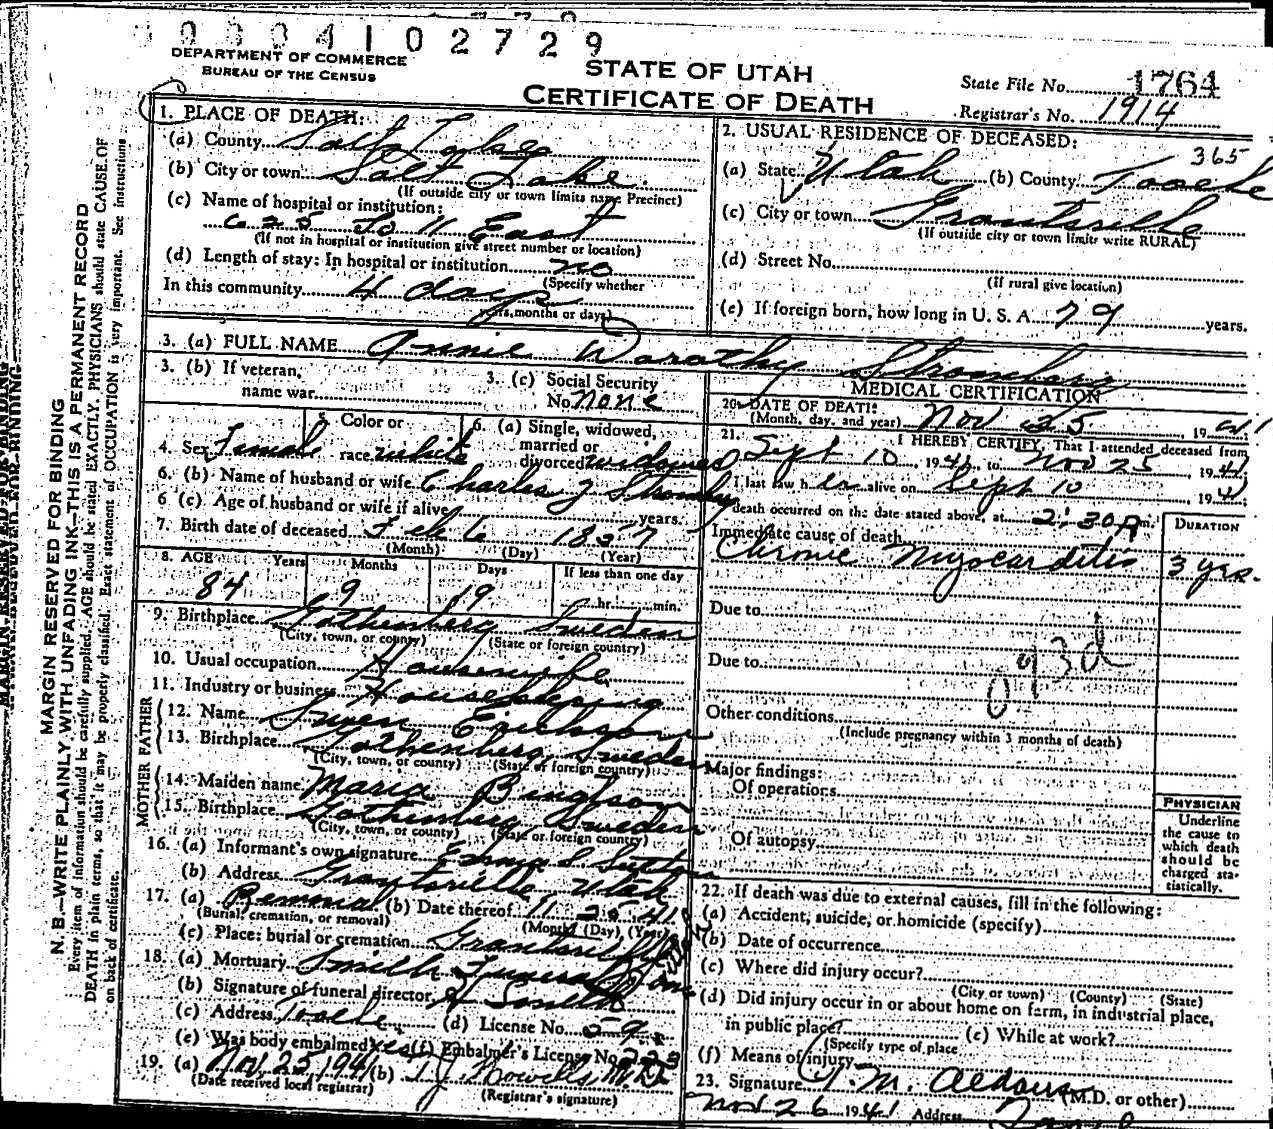 0004102729
DEPARTMENT OF COMMERCE
BUREAU OF THE CENSUS
STATE OF UTAH
CERTIFICATE OF DEATH
State File No. 1764
Registrar's No. 1914
1. PLACE OF DEATH:
(a) County Salt Lake
(b) City or town Salt Lake
(If outside city or town limits name Precinct)
(c) Name of hospital or institution:
625 So 11 East
(If not in hospital or institution give street number or location)
(d) Length of stay: In hospital or institution no
(Specify whether
In this community 4 days
years, months or days)
2. USUAL RESIDENCE OF DECEASED:
365
(a) State Utah (b) County Tooele
(c) City or town Grantsville
(If outside city or town limits write RURAL)
(d) Street No.
(If rural give location)
(e) If foreign born, how long in U. S. A. 79 years.
3. (a) FULL NAME Annie Dorathy Stromberg
3. (b) If veteran,
name war
3. (c) Social Security
No. none
4. Sex Female
5. Color or
race white
6. (a) Single, widowed,
married or
divorced widowed
6. (b) Name of husband or wife Charles J Stromberg
6 (c) Age of husband or wife if alive years.
7. Birth date of deceased Feb 6 1857
(Month) (Day) (Year)
8. AGE Years Months Days If less than one day
84 9 19 hr. min.
9. Birthplace Gothenberg Sweden
(City, town, or county) (State or foreign country)
10. Usual occupation Housewife
11. Industry or business Housekeeping
FATHER
12. Name Swen Erickson
13. Birthplace Gothenberg Sweden
(City, town, or county) (State or foreign country)
MOTHER
14. Maiden name Maria
15. Birthplace Gothenberg Sweden
(City, town, or county) (State or foreign country)
16. (a) Informant's own signature
(b) Address Grantsville Utah
17. (a) Removal (b) Date thereof 11 25 41
(Burial, cremation, or removal) (Month) (Day) (Year)
(c) Place: burial or cremation Grantsville
18. (a) Mortuary Smith Funeral Home
(b) Signature of funeral director, Smith
(c) Address Tooele (d) License No. 59
(e) Was body embalmed yes (f) Embalmer's License No. 223
19. (a) Nov. 25, 1941 (b) T J Howells, M.D.
(Date received local registrar) (Registrar's signature)
MEDICAL CERTIFICATION
20. DATE OF DEATH:
(Month, day, and year) Nov 25, 1941
21. I HEREBY CERTIFY, That I attended deceased from
Sept 10, 1941, to Nov 25 1941
I last saw her alive on Sept 10, 1941
death occurred on the date stated above, at 2:30 P m.
DURATION
Immediate cause of death
Chronic Myocarditis 3 yrs.
Due to
093d
Due to
Other conditions
(Include pregnancy within 3 months of death)
Major findings:
Of operations
Of autopsy
PHYSICIAN
Underline
the cause to
which death
should be
charged sta-
tistically.
22. If death was due to external causes, fill in the following:
(a) Accident, suicide, or homicide (specify)
(b) Date of occurrence
(c) Where did injury occur?
(City or town) (County) (State)
(d) Did injury occur in or about home on farm, in industrial place,
in public place? (e) While at work?
(Specify type of place
(f) Means of injury
23. Signature J. M. Aldous (M.D. or other)
Nov 26 1941 Address
MARGIN RESERVED FOR BINDING
N. B.—WRITE PLAINLY WITH UNFADING INK—THIS IS A PERMANENT RECORD
Every item of information should be carefully supplied. AGE should be stated EXACTLY. PHYSICIANS should state CAUSE OF
DEATH in plain terms, so that it may be properly classified. Exact statement of OCCUPATION is very important. See instructions
on back of certificate.